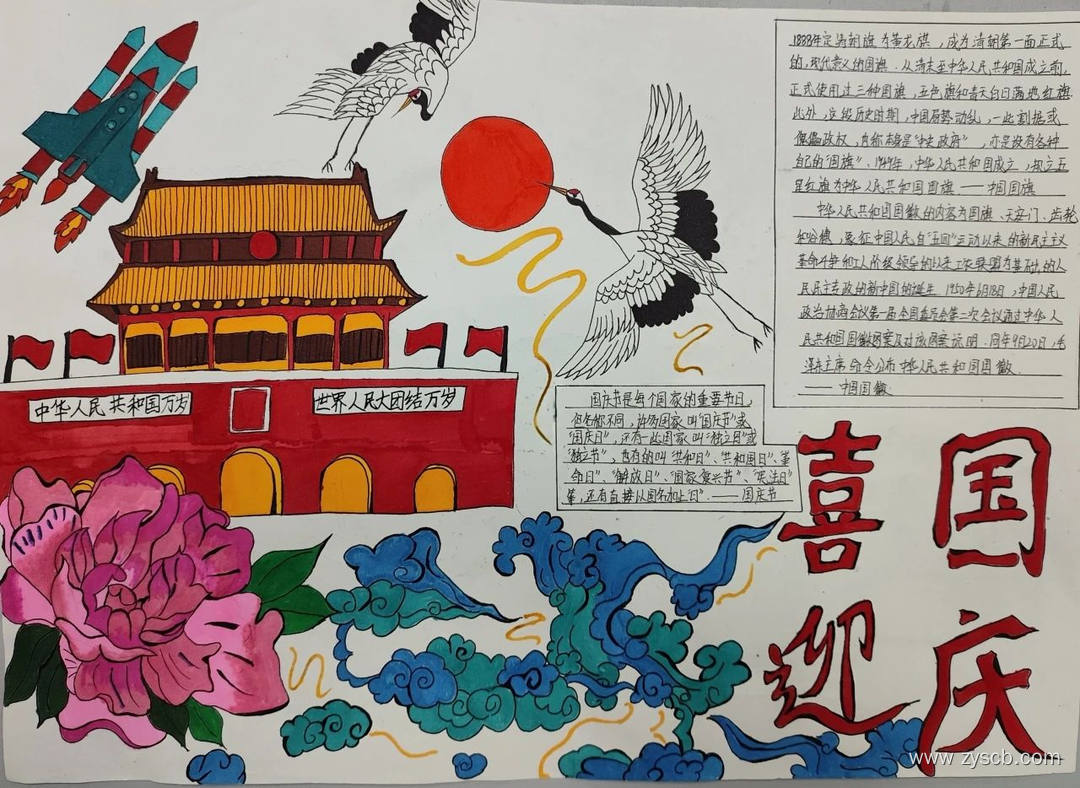 1888年定清朝旗为黄龙旗，成为清朝第一面正式
的，现代意义的国旗。从清末至中华人民共和国成立前，
正式使用过三种国旗，五色旗和青天白日满地红旗
此外，这段历史时期，中国局势动乱，一些割据或
傀儡政权，自称是"中央政府"，亦是设有各种
自己的"国旗"、1949年，中华人民共和国成立，规立五
星红旗为中华人民共和国国旗——中国国旗
中华人民共和国国徽的内容为国旗、天安门、齿轮
和谷穗，象征中国人民自"五四"运动以来的新民主主义
革命斗争和工人阶级领导的以来工农联盟为基础的人
民民主专政的新中国的诞生 1950年6月18日，中国人民
政治协商会议第一届全国委员会第二次会议通过中华人
民共和国国徽图案及对该图案说明．同年9月20日，毛
泽东主席命令公布中华人民共和国国徽．
——中国国徽
中华人民共和国万岁
世界人民大团结万岁
国庆节是每个国家的重要节日，
但名称不同，许多国家叫"国庆节"或
"国庆日"，还有一些国家叫"独立日"或
"独立节"，也有的叫"共和日"、"共和国日"、"革
命日"、"解放日"、"国家复兴节"、"宪法日"
等，还有直接以国名加上"日"．——国庆节
喜迎
国庆
www.zyscb.com